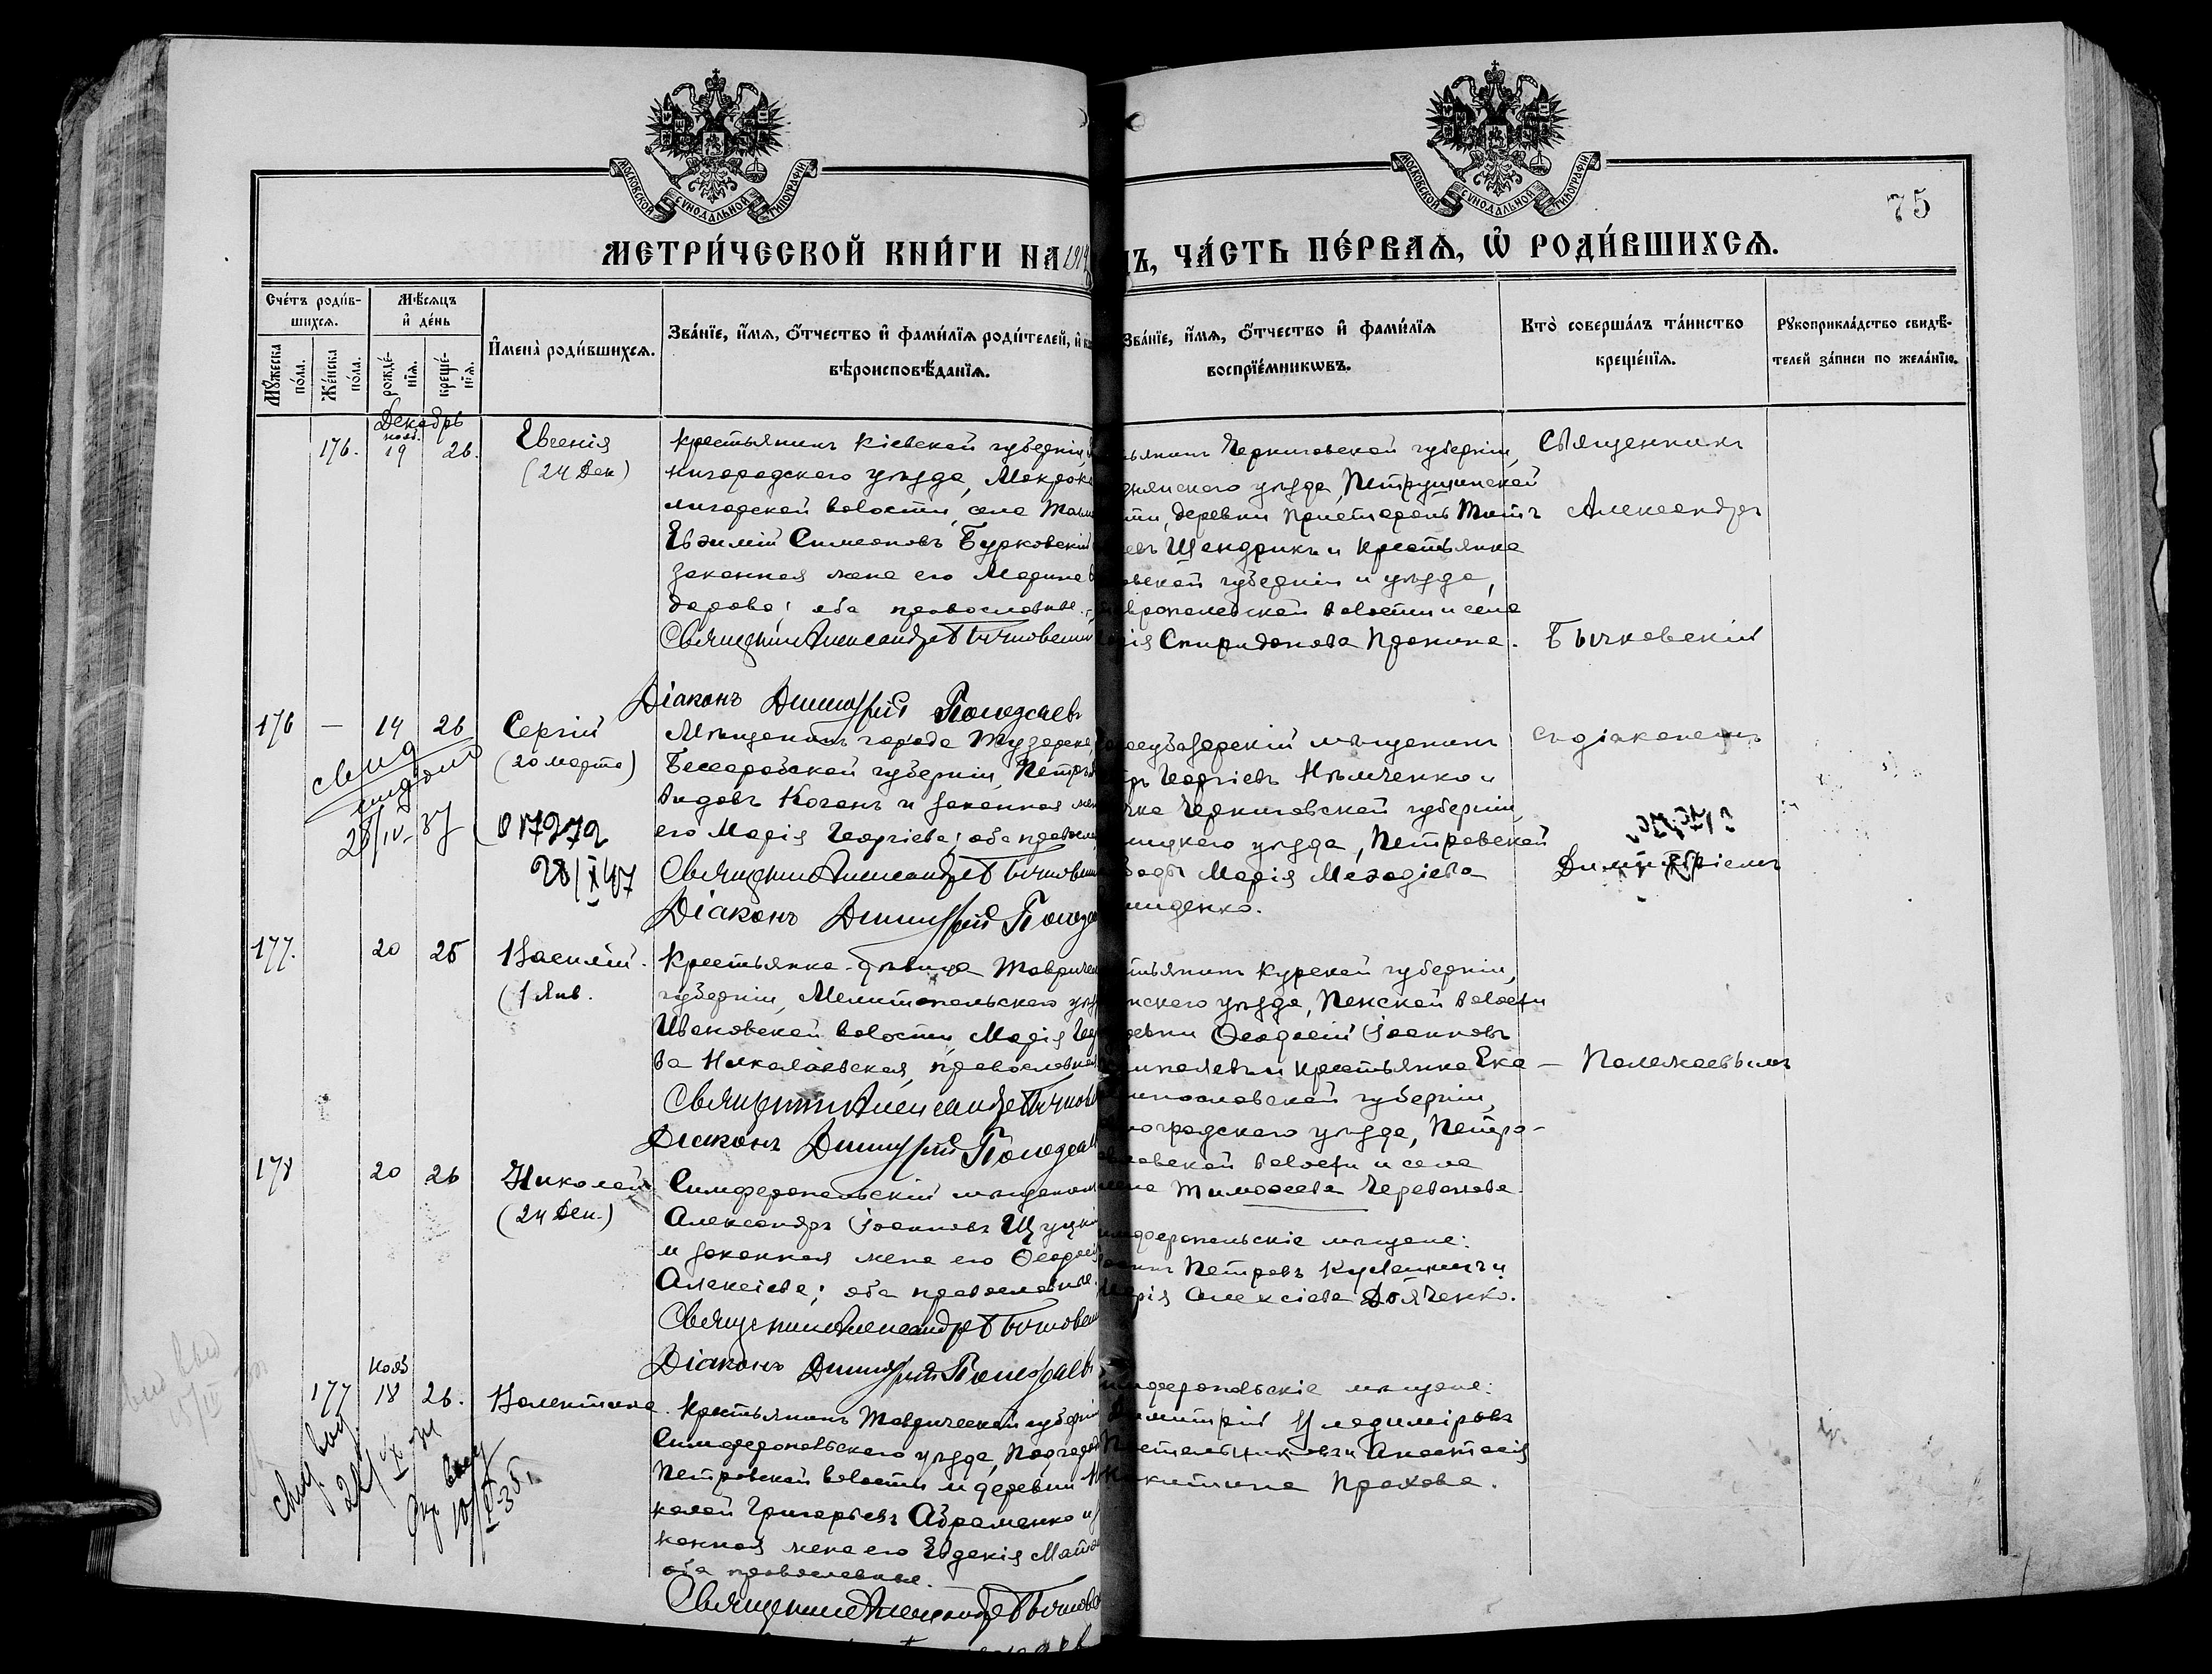 МОСКОВСКОЙ СѴНОДАЛЬНОЙ ТИПОГРАФІИ
МОСКОВСКОЙ СѴНОДАЛЬНОЙ ТИПОГРАФІИ
75
МЕТРИ́ЧЕСКОЙ КНИ́ГИ НА 1914
Ъ, ЧА́СТЬ ПЕ́РВАѦ, Ѡ҆ РОДИ́ВШИХСѦ.
Сче́тъ роди́в-
шихсѧ.
Мꙋ́жеска по́ла.
Же́нска по́ла.
Мѣ́сѧцъ
и҆ де́нь
рожде́-нїѧ.
креще́-нїѧ.
И҆мена̀ роди́вшихсѧ.
Зва́нїе, и҆́мѧ, ѻ҆́тчество и҆ фами́лїѧ роди́телей, и҆
вѣроисповѣ́данїѧ.
Зва́нїе, и҆́мѧ, ѻ҆́тчество и҆ фами́лїѧ
воспрїе́мникѡвъ.
Кто̀ соверша́лъ та́инство
креще́нїѧ.
Рꙋкоприкла́дство свидѣ́-
телей за́писи по жела́нїю.
Декабрь
нояб.
176. 19 26. Евгенія
(24 Дек)
Крестьянинъ Кіевской губерніи,
нигородского уѣзда, Мокрока
лигорской волости, села
Евѳимій Симеоновъ Бурковскій
законная жена его Марина
дорова; оба православные.
Священникъ Александръ Бычковскій
Діаконъ Димитрій Полежаевъ
ьянинъ Черниговской губерніи,
нянского уѣзда, Петрушинской
сти, деревни Присторонь Титъ
евъ Щендрикъ и крестьянка
овской губерніи и уѣзда,
вропольской волости и села
рія Спиридонова Пронина.
Священникъ
Александръ
Бычковскій
176 — 14 26 Сергій
(20 марта)
свид
28/IV-37
017272
28/X 47
Мѣщанинъ города
Бессарабской губерніи, Петръ
видовъ Коганъ и законная же
его Марія Георгіева; оба правосл
Священникъ Александръ Бычковскій
Діаконъ Димитрій Полеж
расубазарскій мѣщанинъ
ръ Георгіевъ Нѣмченко и
нка Черниговской губерніи,
ницкого уѣзда, Петровской
Марія Меѳодіева
миденко.
съ діакономъ
Димитріемъ
177. 20 26 Василій.
(1 Янв.
Крестьянка-дѣвица Тавриче
губерніи, Мелитопольского уѣз
Ивановской волости, Марія Гео
ва Николаевская, православная
Священникъ Александръ Бычков
Діаконъ Димитрій Полежае
стьянинъ Курской губерніи,
нского уѣзда, Пенской волости
ревни Ѳеодосій Іоанновъ
и крестьянка Ека-
ринославской губерніи,
лоградского уѣзда, Петро-
вловской волости и села
лена Тимоѳеева Череванова.
— Полежаевымъ
178 20 26 Николай
(24 Дек.)
Симферопольскій мѣщанинъ
Александръ Іоанновъ Щуцкі
и законная жена его Ѳеодосія
Алексіева; оба православные.
Священникъ Александръ Бычковскій
Діаконъ Димитрій Полежаевъ
имферопольскіе мѣщане:
Петровъ и
Марія Алексіева Дояченко.
нояб
177 18 26. Валентина.
Крестьянинъ Таврической губерніи
Симферопольского уѣзда, Подгород
Петровской волости и деревни Ни
колай Григорьевъ Авраменко и з
конная жена его Евдокія
оба православные.
Священникъ Александръ Бычков
имферопольскіе мѣщане:
Димитрій Владиміровъ
Постельниковъ и Анастасія
Никитина Прохова.